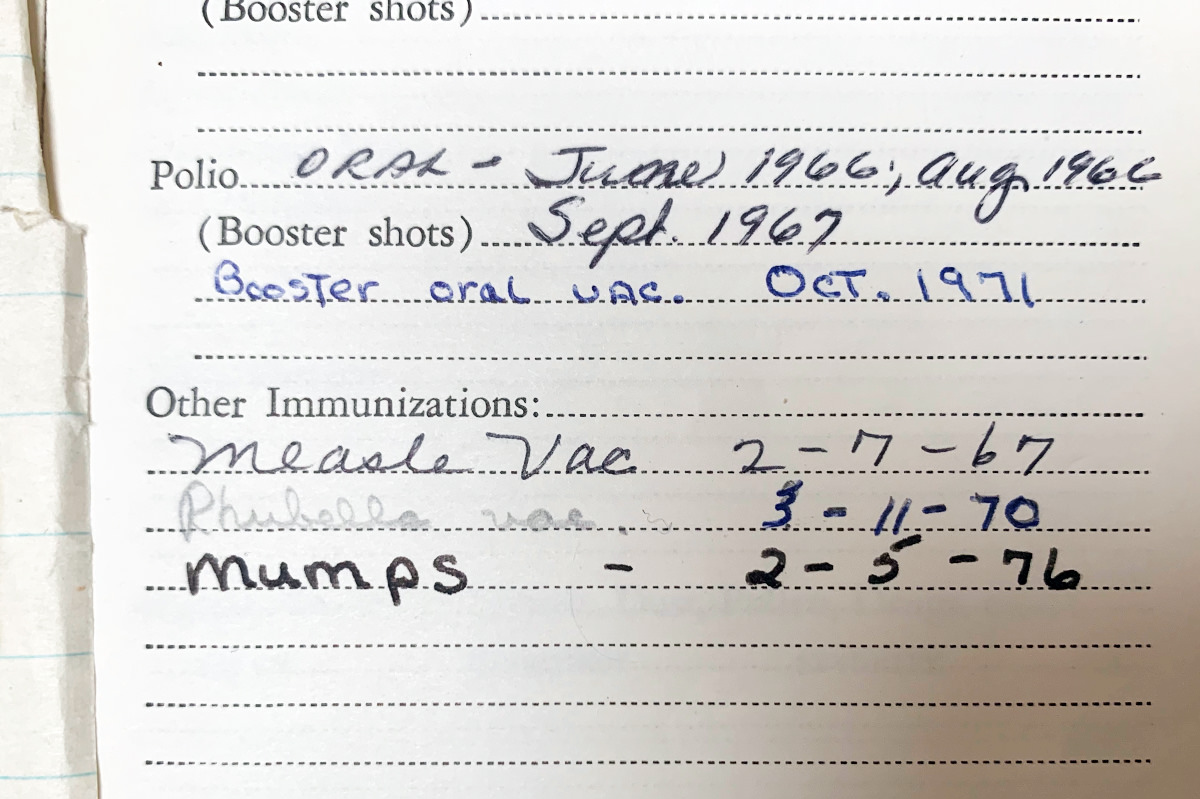 (Booster shots)
Polio ORAL - June 1966; Aug 1966
(Booster shots) Sept. 1967
Booster oral vac. Oct. 1971
Other Immunizations:
Measle Vac 2-7-67
Rhubella vac. 3-11-70
Mumps - 2-5-76